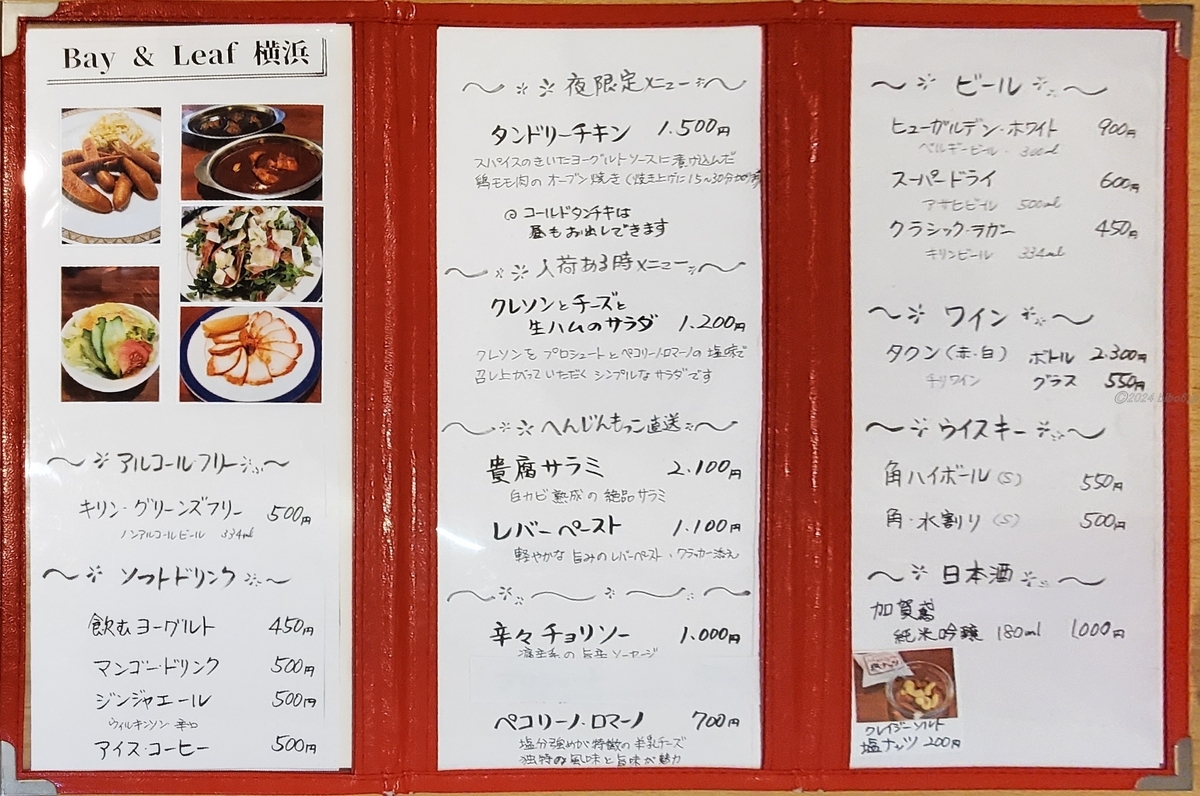 Bay & Leaf 横浜
アルコールフリー
キリン・グリーンズフリー 500円
ノンアルコールビール 334ml
ソフトドリンク
飲むヨーグルト 450円
マンゴードリンク 500円
ジンジャエール 500円
ウィルキンソン 辛口
アイス・コーヒー 500円
夜限定メニュー
タンドリーチキン 1.500円
スパイスのきいたヨーグルトソースに漬け込んだ
鶏モモ肉のオーブン焼き (焼き上げに15〜30分
@ コールドタンチキは
昼もお出しできます
入荷ある時メニュー
クレソンとチーズと
生ハムのサラダ 1.200円
クレソンを プロシュートとペコリーノロマーノの 塩味で
召し上がって いただく シンプルな サラダです
へんじんもっこ直送
貴腐サラミ 2.100円
白カビ熟成の 絶品サラミ
レバーペースト 1.100円
軽やかな 旨みのレバーペースト・クラッカー添え
辛々チョリソー 1.000円
旨辛ソーセージ
ペコリーノ・ロマーノ 700円
塩分強めが特徴の羊乳チーズ
独特の風味と旨味が魅力
ビール
ヒューガルデン・ホワイト 900円
ベルギービール・ 300ml
スーパードライ 600円
アサヒビール 500ml
クラシック・ラガー 450円
キリンビール 334ml
ワイン
タクン (赤・白) ボトル 2.300円
チリワイン グラス 550円
©2024
ウイスキー
角ハイボール (S) 550円
角・水割り (S) 500円
日本酒
加賀鳶
純米吟醸 180ml 1,000円
クレイジーソルト
塩ナッツ 200円